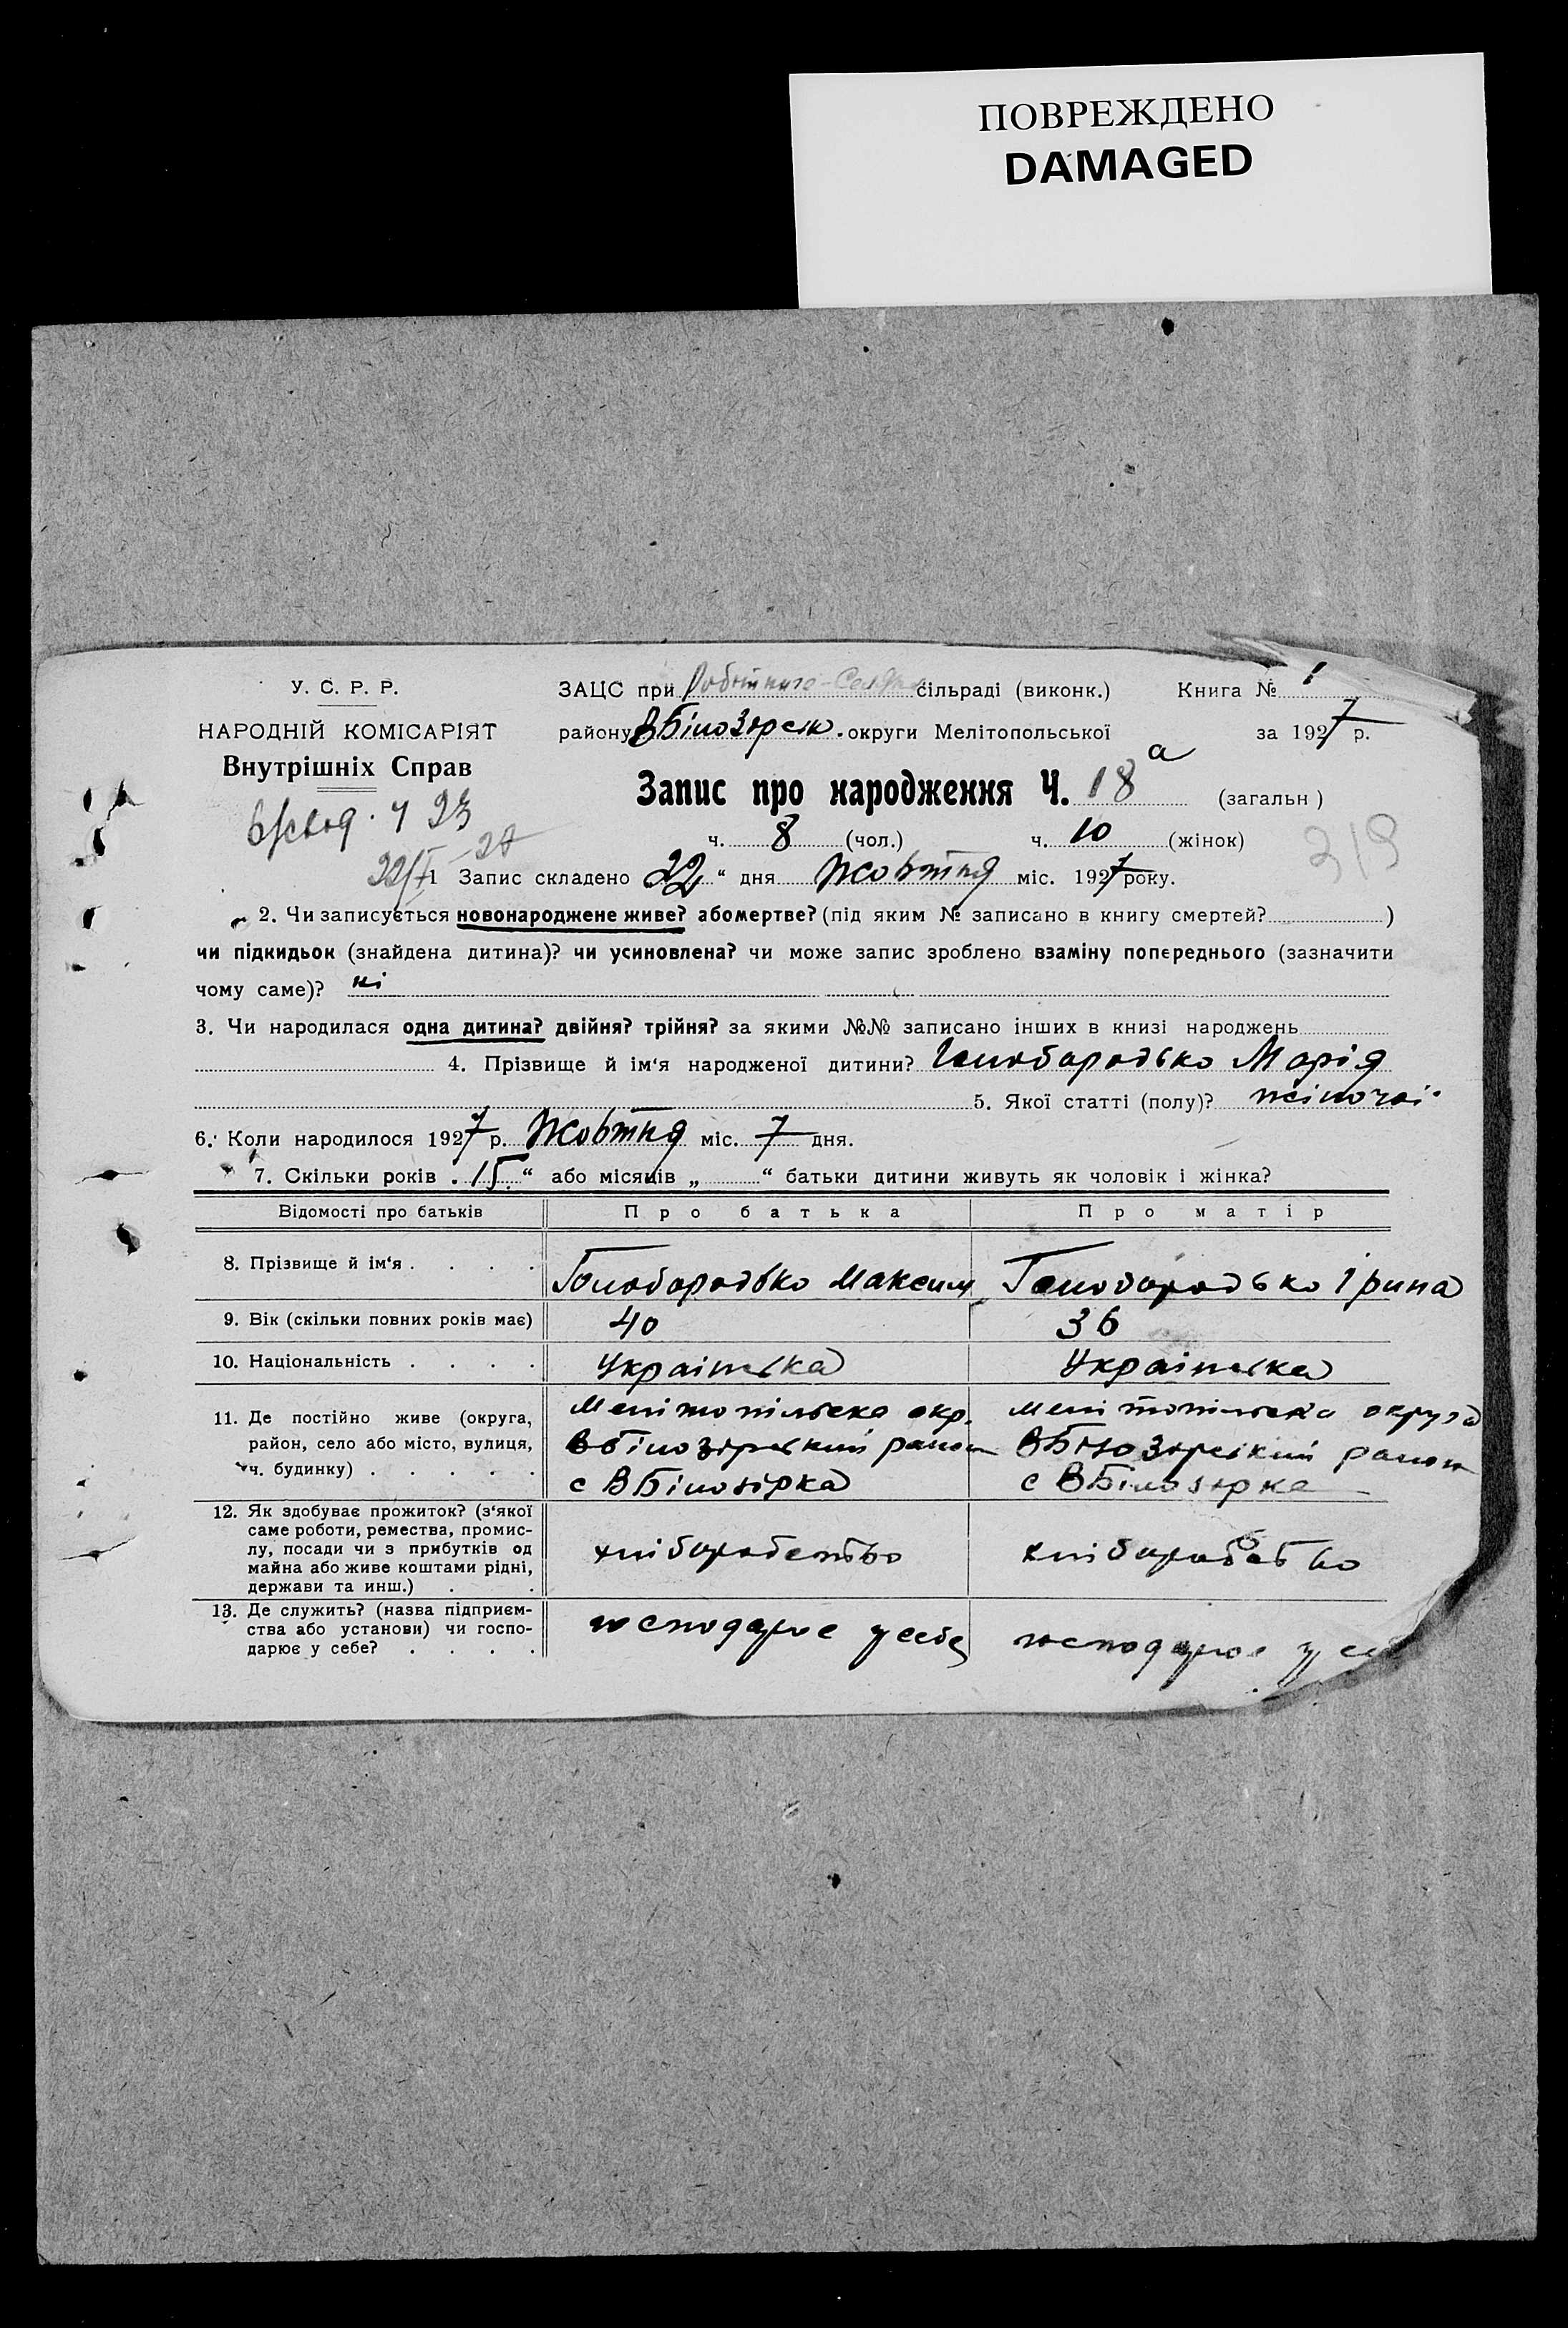 ПОВРЕЖДЕНО
DAMAGED
У. С. Р. Р.
НАРОДНІЙ КОМІСАРІЯТ
Внутрішніх Справ
ЗАЦС при Робітниче-Селян сільраді (виконк.) Книга № 1
району ВБілозірськ. округи Мелітопольської за 1927 р.
Запис про народження Ч. 18а (загальн)
ч. 8 (чол.) ч. 10 (жінок)
319
1 Запис складено 22 “ дня Жовтня міс. 1927 року.
2. Чи записується новонароджене живе? або мертве? (під яким № записано в книгу смертей? )
чи підкидьок (знайдена дитина)? чи усиновлена? чи може запис зроблено взаміну попереднього (зазначити
чому саме)? ні
3. Чи народилася одна дитина? двійня? трійня? за якими №№ записано інших в книзі народжень
4. Прізвище й ім‘я народженої дитини? Голобородько Марія
5. Якої статті (полу)? жіночої
6. Коли народилося 1927 р. Жовтня міс. 7 дня.
7. Скільки років 15 “ або місяців „ “ батьки дитини живуть як чоловік і жінка?
Відомості про батьків Про батька Про матір
8. Прізвище й ім‘я . . . . Голобородько Максим Голобородько Ірина
9. Вік (скільки повних років має) 40 36
10. Національність . . . . Українська Українська
11. Де постійно живе (округа, район, село або місто, вулиця, ч. будинку) . . . . .
Мелітопільска окр. Мелітопільська округа
ВБілозірський район ВБілозірський район
с ВБілозірка с ВБілозірка
12. Як здобуває прожиток? (з‘якої
саме роботи, ремества, промис-
лу, посади чи з прибутків од
майна або живе коштами рідні,
держави та инш.) . .
хліборобство хліборобство
13. Де служить? (назва підприєм-
ства або установи) чи госпо-
дарює у себе? . . . .
господарює у себе господарює у се